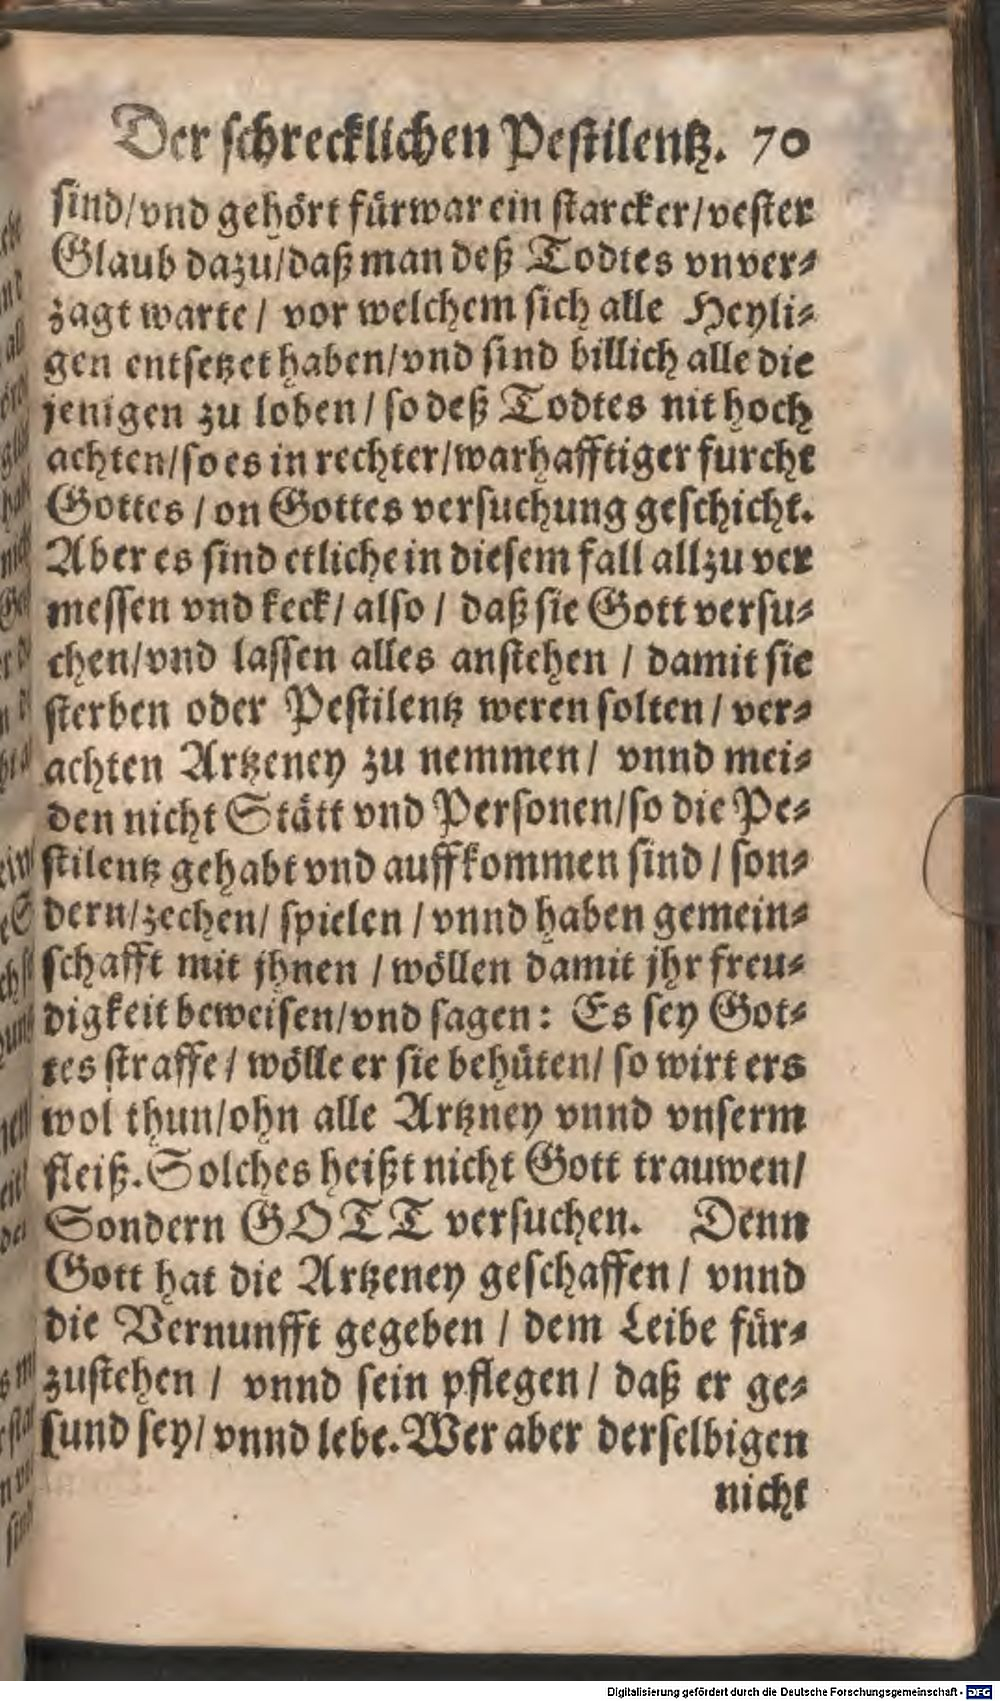 Der schrecklichen Pestilentz. 70
sind/vnd gehört fürwar ein starcker/vester
Glaub dazu/daß man deß Todtes vnver-
zagt warte / vor welchem sich alle Heyli-
gen entsetzet haben/vnd sind billich alle die
jenigen zu loben / so deß Todtes nit hoch
achten/so es in rechter/warhafftiger furcht
Gottes / on Gottes versuchung geschicht.
Aber es sind etliche in diesem fall allzu ver
messen vnd keck/ also / daß sie Gott versu-
chen/vnd lassen alles anstehen / damit sie
sterben oder Pestilentz weren solten / ver-
achten Artzeney zu nemmen / vnnd mei-
den nicht Stätt vnd Personen/so die Pe-
stilentz gehabt vnd auffkommen sind / son-
dern/zechen/ spielen / vnnd haben gemein-
schafft mit jhnen / wöllen damit jhr freu-
digkeit beweisen/vnd sagen: Es sey Got-
tes straffe / wölle er sie behüten/ so wirt ers
wol thun/ohn alle Artzney vnnd vnserm
fleiß. Solches heißt nicht Gott trauwen/
Sondern GOTT versuchen. Denn
Gott hat die Artzeney geschaffen / vnnd
die Vernunfft gegeben / dem Leibe für-
zustehen / vnnd sein pflegen / daß er ge-
sund sey/ vnnd lebe. Wer aber derselbigen
nicht
Digitalisierung gefördert durch die Deutsche Forschungsgemeinschaft - DFG